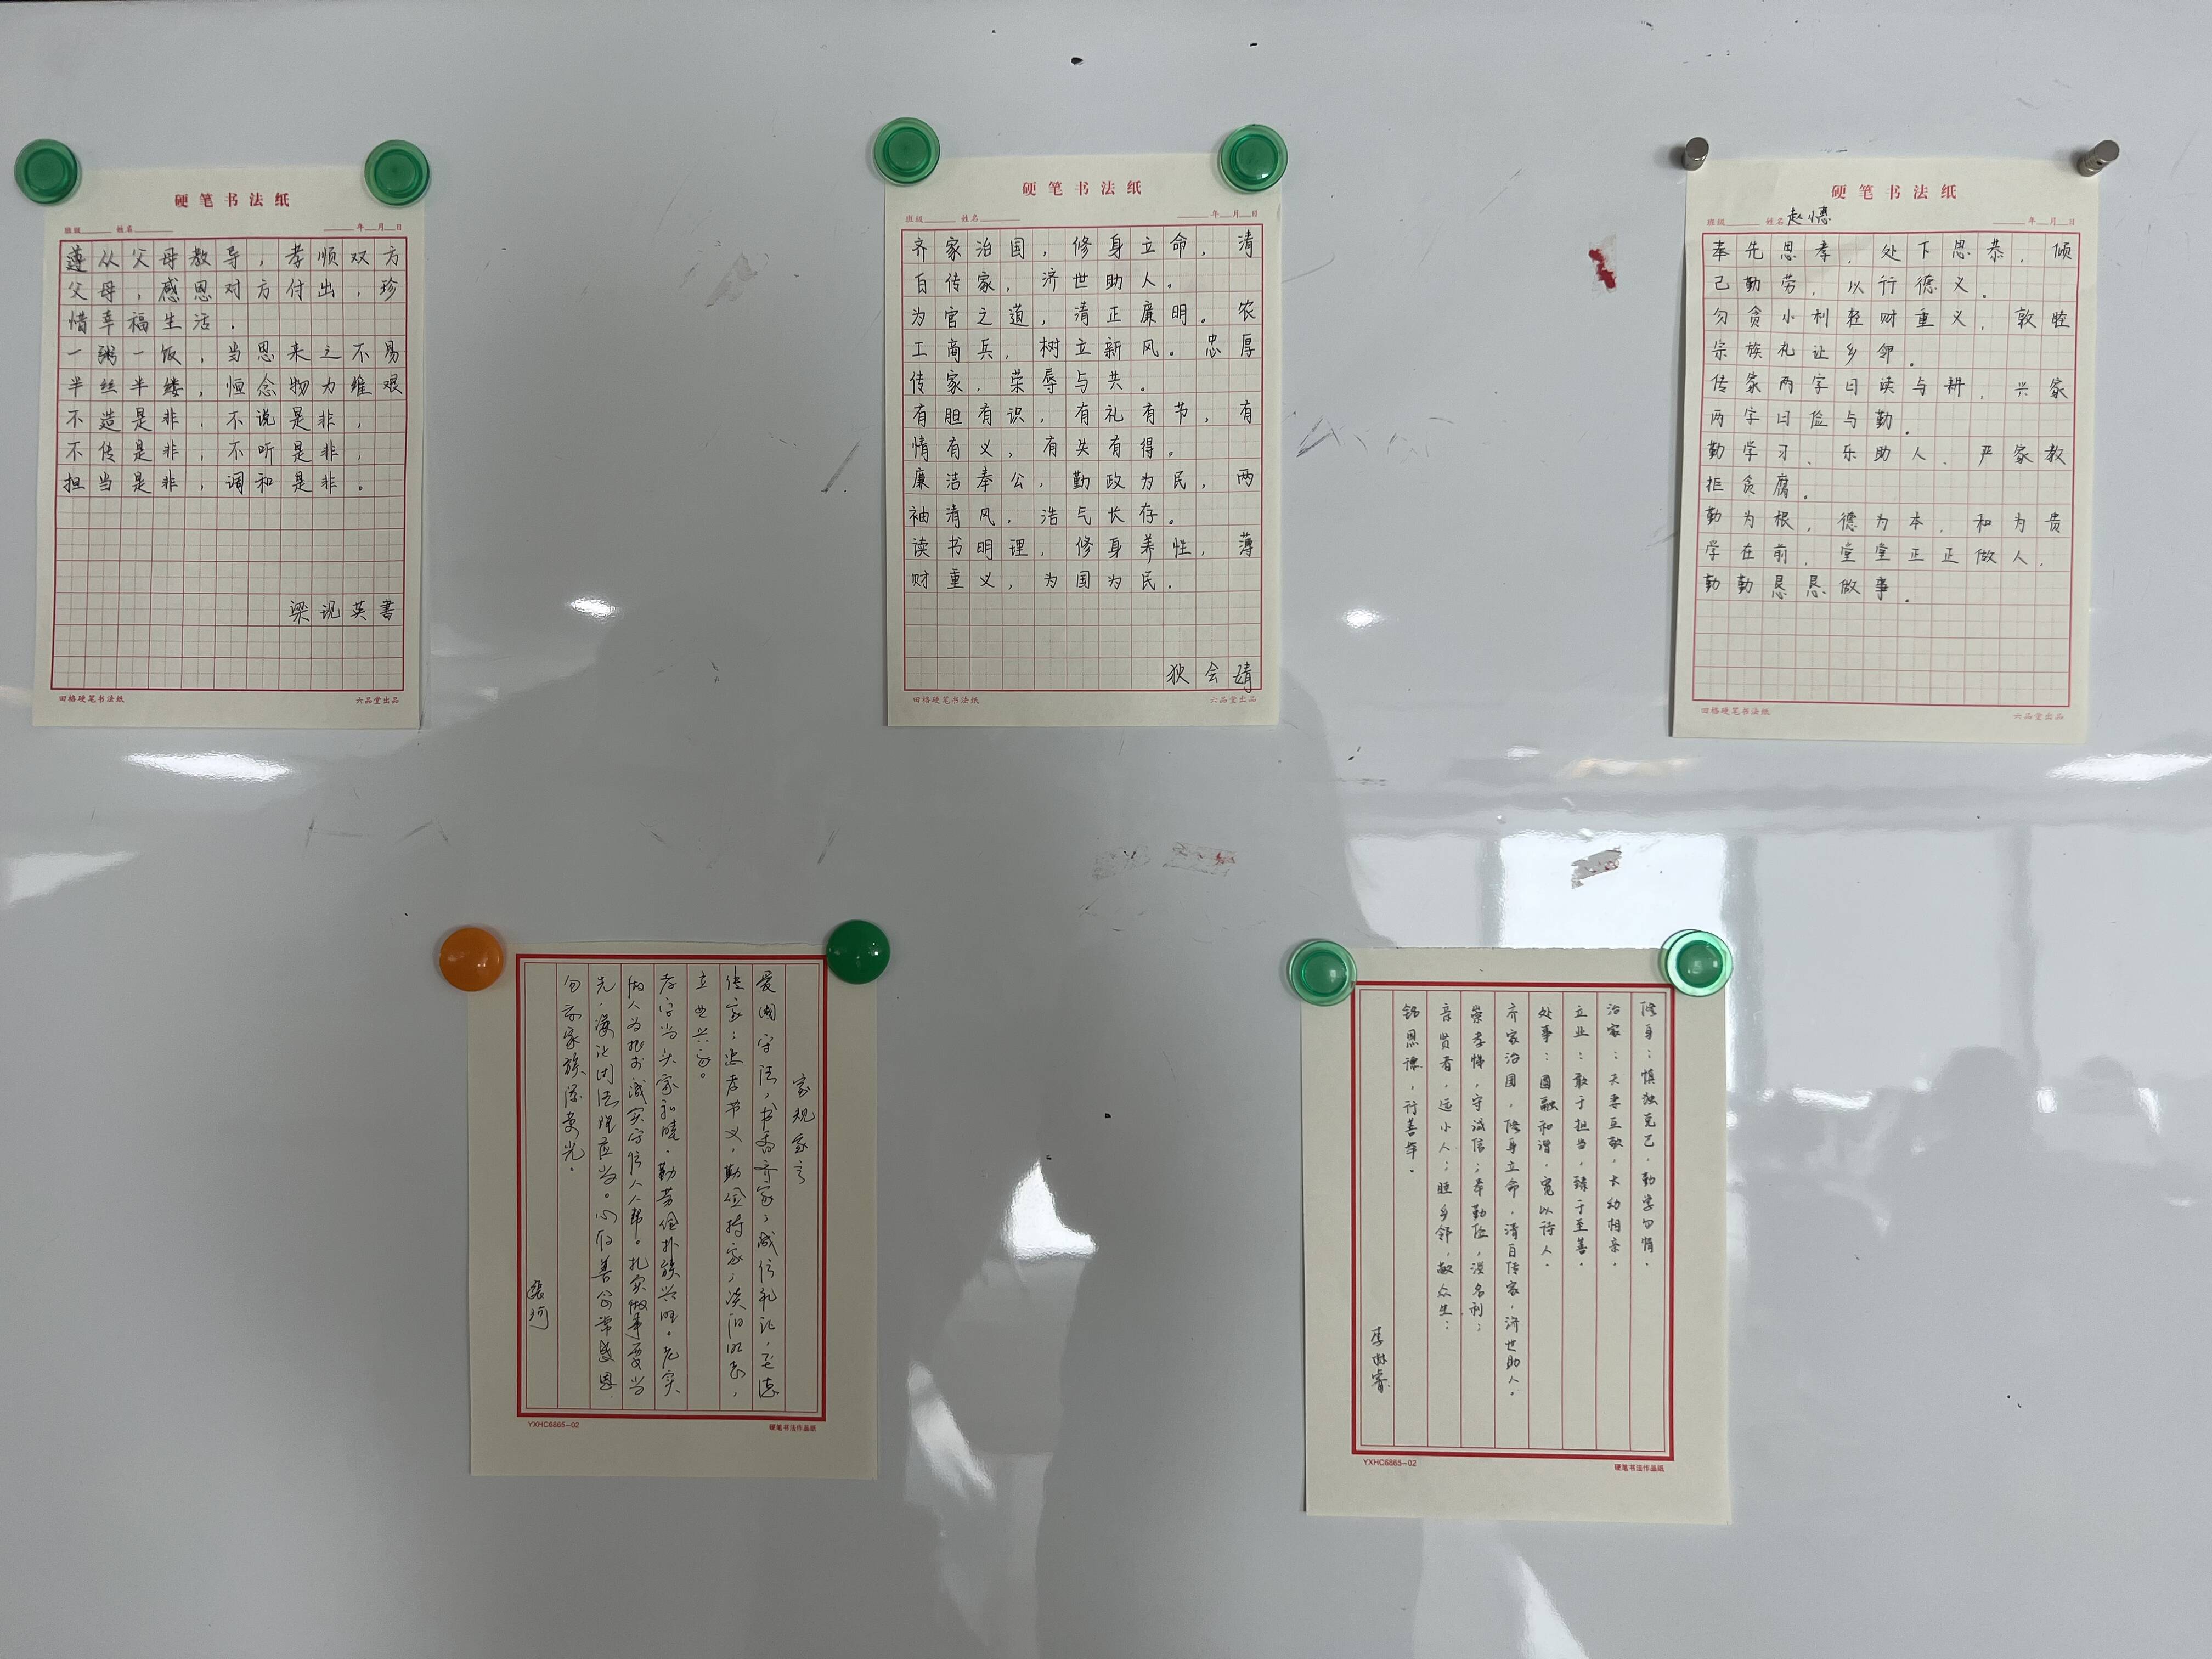 硬笔书法纸
班级 姓名 年 月 日
遵从父母教导，孝顺双方
父母，感恩对方付出，珍
惜幸福生活．
一粥一饭，当思来之不易
半丝半缕，恒念物力维艰
不造是非，不说是非，
不传是非，不听是非，
担当是非，调和是非。
梁现英書
田格硬笔书法纸 六品堂出品
硬笔书法纸
班级 姓名 年 月 日
齐家治国，修身立命，清
白传家，济世助人。
为官之道，清正廉明。农
工商兵，树立新风。忠厚
传家，荣辱与共。
有胆有识，有礼有节，有
情有义，有失有得。
廉洁奉公，勤政为民，两
袖清风，浩气长存。
读书明理，修身养性，薄
财重义，为国为民。
狄会靖
田格硬笔书法纸 六品堂出品
硬笔书法纸
班级 姓名 赵 年 月 日
奉先思孝，处下思恭，倾
己勤劳，以行德义．
勿贪小利轻财重义，敦睦
宗族礼让乡邻．
传家两字曰读与耕，兴家
两字曰俭与勤．
勤学习、乐助人、严家教
拒贪腐．
勤为根，德为本，和为贵
学在前，堂堂正正做人，
勤勤恳恳做事．
田格硬笔书法纸 六品堂出品
家规家言
爱国守法，书香齐家；诚信礼让，立德
传家；忠孝节义，勤俭持家；淡泊明志，
立业兴家。
孝字当头家和睦，勤劳俭朴族兴旺。老实
做人为根本诚实守信人人帮。扎实做事要当
先，遵纪守法理应当。心存善念常感恩
勿忘家族添荣光。
张珂
YXHC6865-02 硬笔书法作品纸
修身：慎独克己，勤学勿惰．
治家：夫妻互敬，长幼相亲．
立业：敢于担当，臻于至善．
处事：圆融和谐，宽以待人．
齐家治国，修身立命，清白传家，济世助人．
崇孝悌，守诚信；奉勤俭，淡名利；
亲贤者，远小人；睦乡邻，敬众生；
铭恩德，行善举．
李睿
YXHC6865-02 硬笔书法作品纸